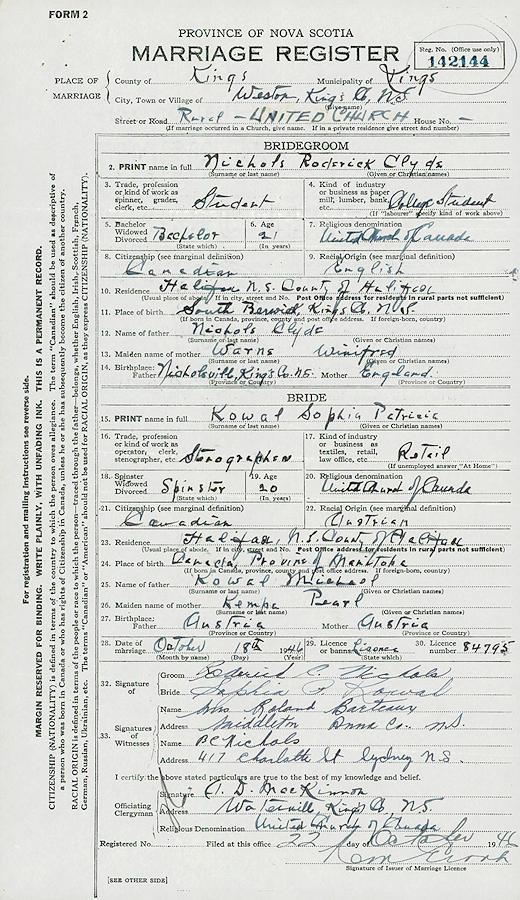 FORM 2
PROVINCE OF NOVA SCOTIA
MARRIAGE REGISTER
Reg. No. (Office use only)
142144
PLACE OF MARRIAGE
County of Kings Municipality of Kings
City, Town or Village of Weston, Kings Co, N.S.
(Give name)
Street or Road Rural - UNITED CHURCH House No. -
(If marriage occurred in a Church, give name. If in a private residence give street and number)
BRIDEGROOM
2. PRINT name in full Nichols Roderick Clyde
(Surname or last name) (Given or Christian names)
3. Trade, profession or kind of work as spinner, grader, clerk, etc. Student
4. Kind of industry or business as paper mill, lumber, bank, dairy, etc. College Student
(If "labourer" specify kind of work above)
5. Bachelor Widowed Divorced Bachelor
(State which)
6. Age 21
(In years)
7. Religious denomination United Church of Canada
8. Citizenship (see marginal definition) Canadian
9. Racial Origin (see marginal definition) English
10. Residence Halifax N.S. County of Halifax
(Usual place of abode. If in city, street and No. Post Office address for residents in rural parts not sufficient)
11. Place of birth South Berwick, Kings Co, N.S.
(If born in Canada, province, county and post office address. If foreign-born, country)
12. Name of father Nichols Clyde
(Surname or last name) (Given or Christian names)
13. Maiden name of mother Warns Winifred
(Surname or last name) (Given or Christian names)
14. Birthplace: Father Nicholsville, Kings Co. N.S. Mother England
(Province or Country) (Province or Country)
BRIDE
15. PRINT name in full Kowal Sophia Patricia
(Surname or last name) (Given or Christian names)
16. Trade, profession or kind of work as operator, clerk, stenographer, etc. Stenographer
17. Kind of industry or business as textiles, retail, law office, etc. Retail
(If unemployed answer "At Home")
18. Spinster Widowed Divorced Spinster
(State which)
19. Age 20
(In years)
20. Religious denomination United Church of Canada
21. Citizenship (see marginal definition) Canadian
22. Racial Origin (see marginal definition) Austrian
23. Residence Halifax, N.S. County of Halifax
(Usual place of abode. If in city, street and No. Post Office address for residents in rural parts not sufficient)
24. Place of birth Canada, Province of Manitoba
(If born in Canada, province, county and post office address. If foreign-born, country)
25. Name of father Kowal Michael
(Surname or last name) (Given or Christian names)
26. Maiden name of mother Kempa Pearl
(Surname or last name) (Given or Christian names)
27. Birthplace: Father Austria Mother Austria
(Province or Country) (Province or Country)
28. Date of marriage October 18th 1946
(Month by name) (Day) (Year)
29. Licence or banns License
30. Licence number 84795
32. Signature of
Groom Roderick C. Nichols
Bride Sophia P. Kowal
33. Signatures of Witnesses
Name Mrs Roland
Address Middleton Anna Co. N.S.
Name B C Nichols
Address 417 Charlotte St Sydney N.S.
I certify the above stated particulars are true to the best of my knowledge and belief.
Officiating Clergyman
Signature A. D. MacKinnon
Address Waterville, Kings Co, N.S.
Religious Denomination United Church of Canada
Registered No. Filed at this office 22 day of October 1946
Signature of Issuer of Marriage Licence
[SEE OTHER SIDE]
For registration and mailing instructions see reverse side.
MARGIN RESERVED FOR BINDING. WRITE PLAINLY, WITH UNFADING INK. THIS IS A PERMANENT RECORD.
CITIZENSHIP (NATIONALITY) is defined in terms of the country to which the person owes allegiance. The term "Canadian" should be used as descriptive of
a person who was born in Canada or who has rights of Citizenship in Canada, unless he or she has subsequently become the citizen of another country.
RACIAL ORIGIN is defined in terms of the people or race to which the person—traced through the father—belongs, whether English, Irish, Scottish, French,
German, Russian, Ukrainian, etc. The terms "Canadian" or "American" should not be used for RACIAL ORIGIN, as they express CITIZENSHIP (NATIONALITY).